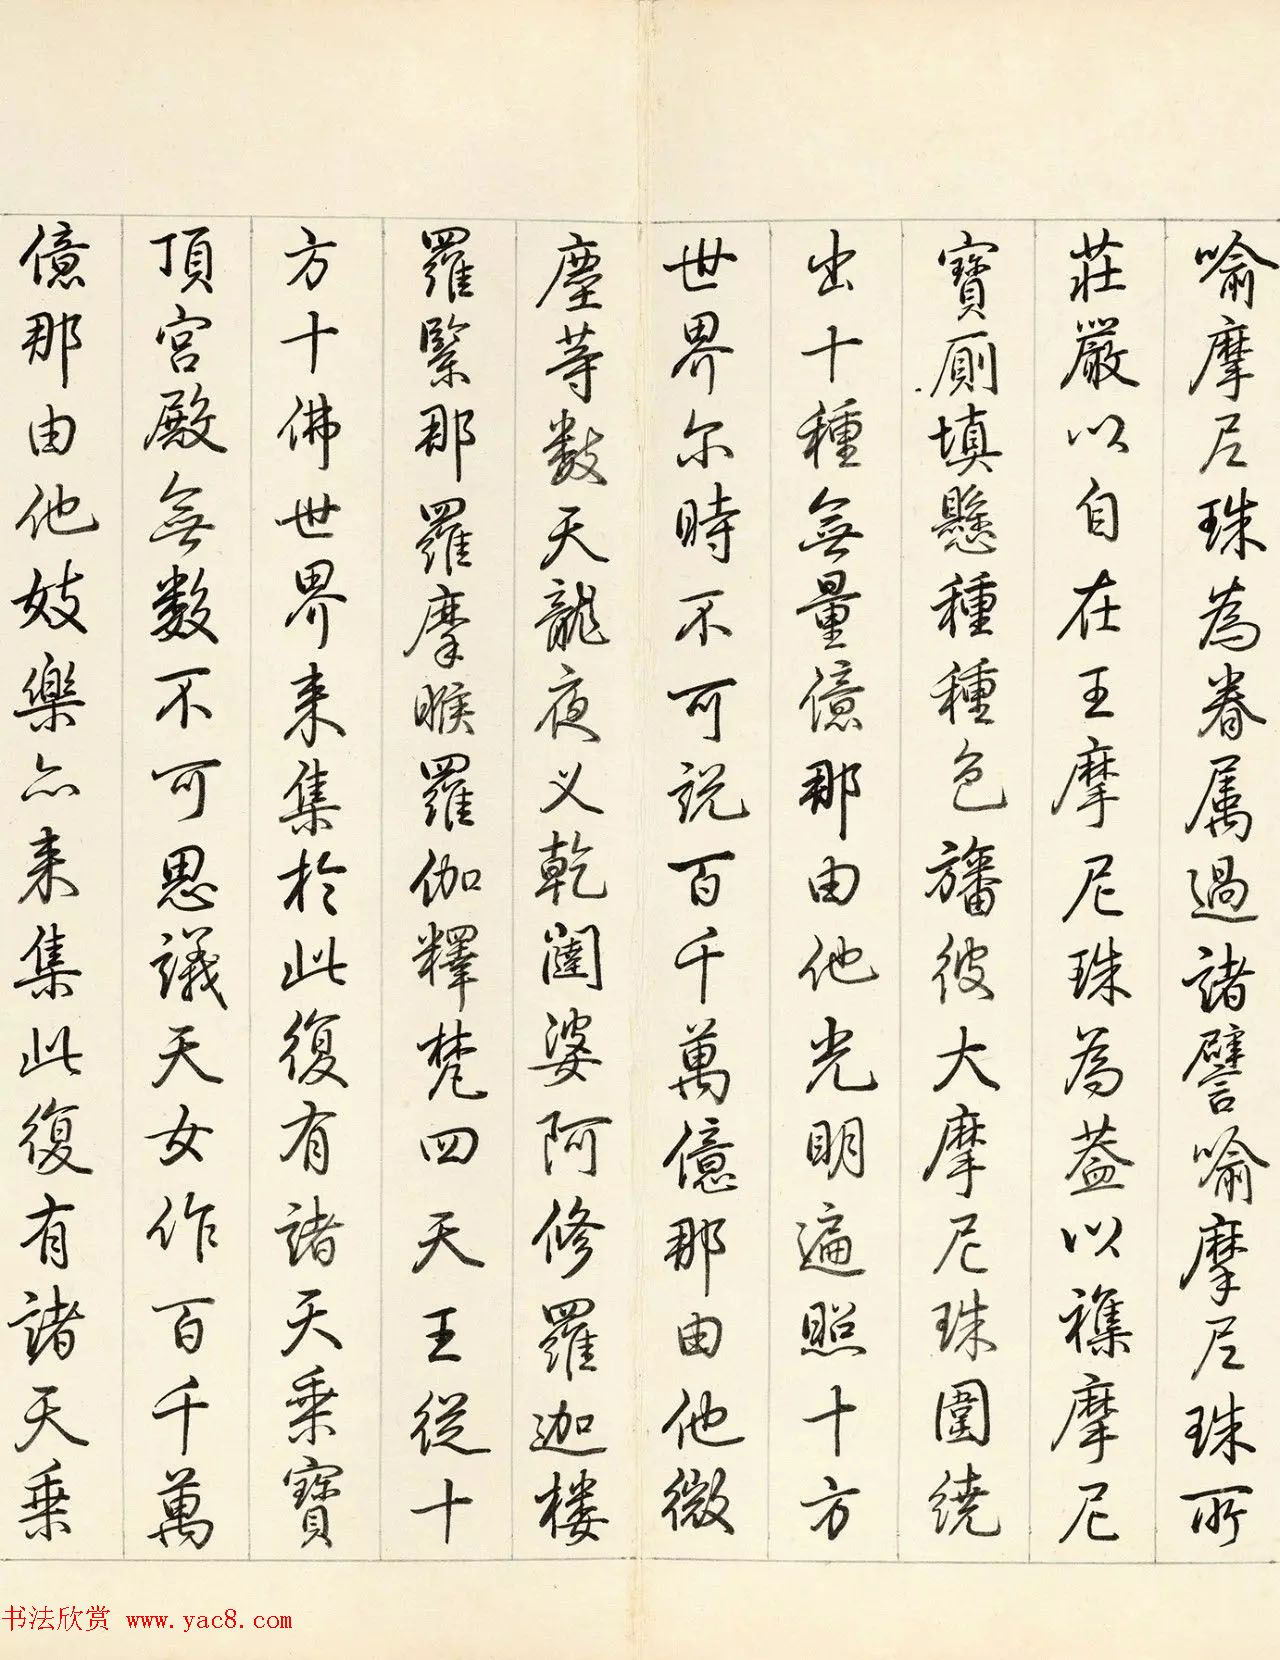 喻摩尼珠為眷属過諸譬喻摩尼珠所
莊嚴以自在王摩尼珠為蓋以襍摩尼
寶厠填懸種種色旛彼大摩尼珠圍繞
出十種無量億那由他光明遍照十方
世界尔時不可説百千萬億那由他微
塵等数天龍夜义乾闥婆阿修羅迦楼
羅緊那羅摩睺羅伽釋梵四天王從十
方十佛世界来集於此復有諸天乘寶
頂宮殿無数不可思議天女作百千萬
億那由他妓樂亦来集此復有諸天乘
书法欣赏 www.yac8.com